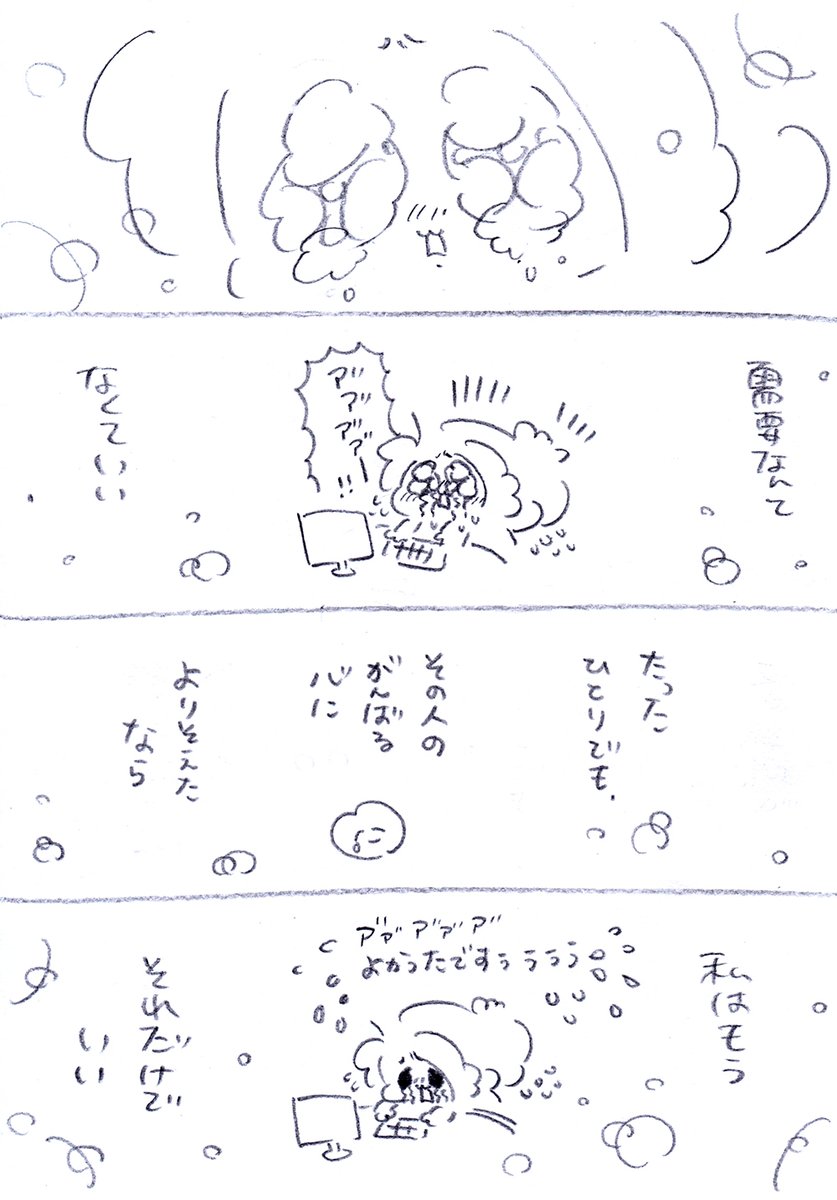 需要なんて
アﾞ
アﾞ
アﾞ
アﾞー
!!
なくていい
たった
ひとりでも、
その人の
がんばる
心に
よりそえた
なら
私はもう
アﾞアﾞアﾞアﾞアﾞ
よかったですぅぅぅぅ
それだけで
いい